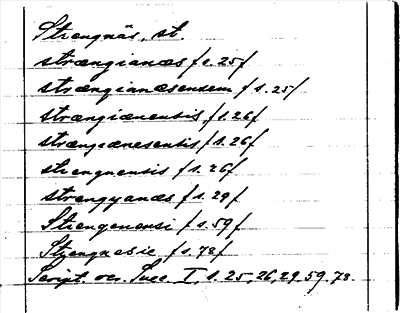 Strengnäs, st.
strængianæs f 1.25f
strængiannæsensem f 1.25f
strængianensis f 1.26f
strængianesensis f 1.26f
strengnensis f 1.26f
strengyanæs f 1.29f
Strengenensi f 1.59f
Stængnesie f 1.78f
Script. rer. Suec. I, 1. 25, 26, 29. 59. 78.